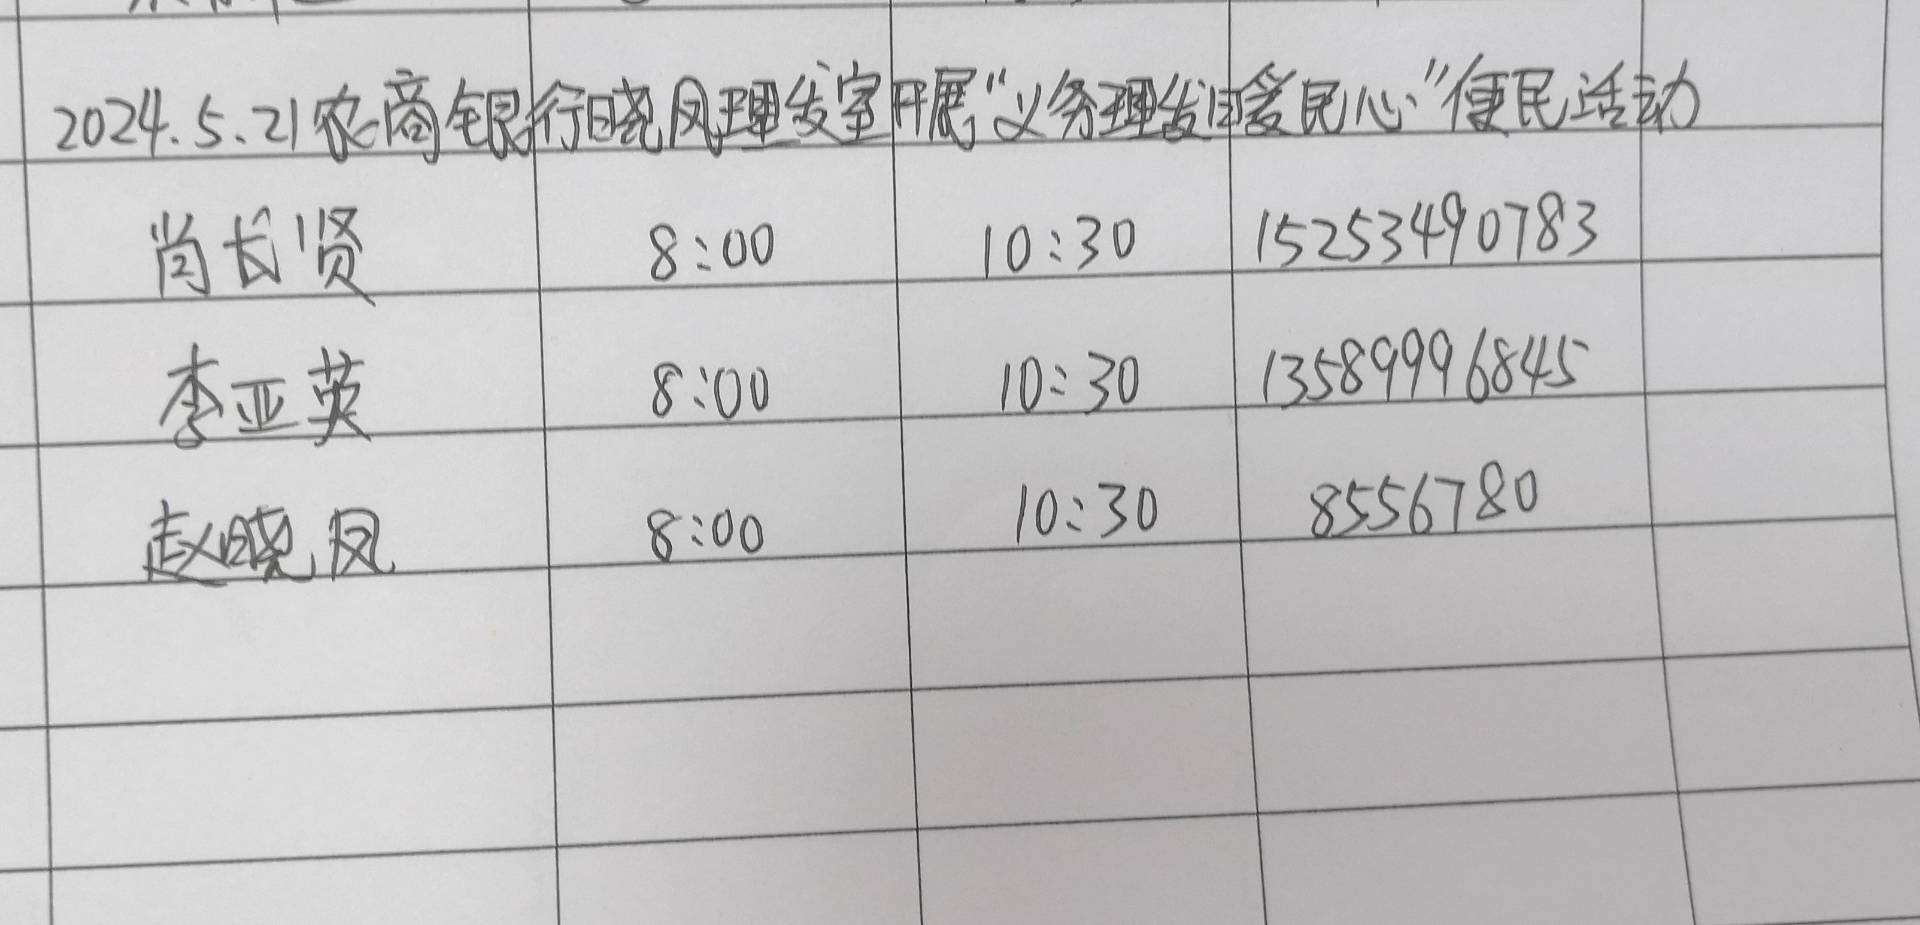 2024.5.21农商银行晓凤理发室开展“义务理发暖民心”便民活动
肖长贤 8:00 10:30 15253490783
李亚英 8:00 10:30 13589996845
赵晓凤 8:00 10:30 8556780